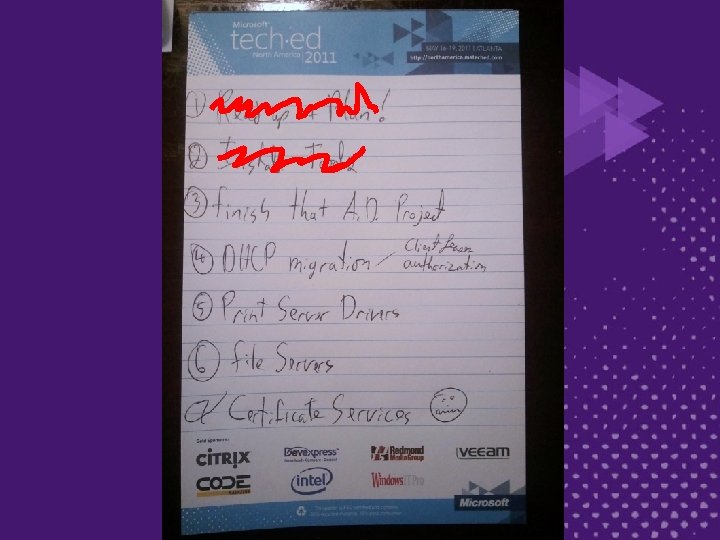 Microsoft
tech·ed
North America | 2011
MAY 16-19, 2011 | ATLANTA
http://northamerica.msteched.com
① Read up + Plan!
② Install Tools
③ finish that A.D. Project
④ DHCP migration / Client
authorization
⑤ Print Server Drivers
⑥ file Servers
Certificate Services
Gold Sponsors:
CITRIX
DevExpress
Redmond
MediaGroup
veeam
CODE
MAGAZINE
intel
Windows IT Pro
Microsoft